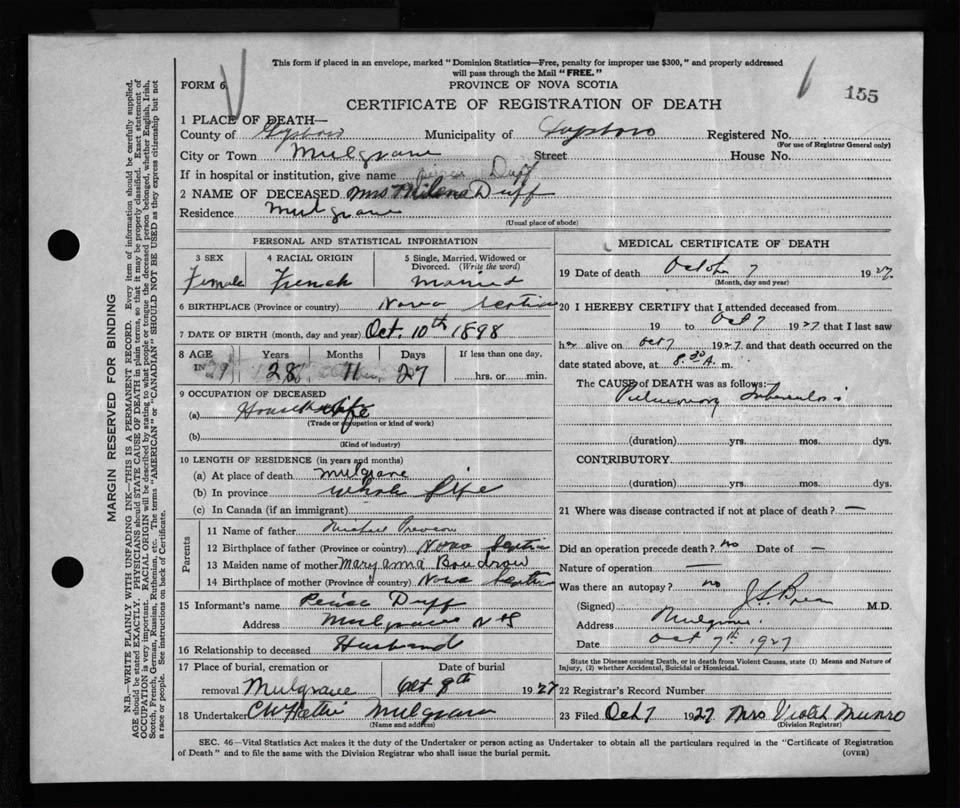 This form if placed in an envelope, marked "Dominion Statistics—Free, penalty for improper use $300," and properly addressed
will pass through the Mail "FREE."
FORM 6.
PROVINCE OF NOVA SCOTIA
155
CERTIFICATE OF REGISTRATION OF DEATH
1 PLACE OF DEATH—
County of Guysboro Municipality of Guysboro Registered No.
(For use of Registrar General only)
City or Town Mulgrave Street House No.
If in hospital or institution, give name Duff
2 NAME OF DECEASED Mrs Milena Duff
Residence Mulgrave
(Usual place of abode)
PERSONAL AND STATISTICAL INFORMATION
3 SEX 4 RACIAL ORIGIN 5 Single, Married, Widowed or
Divorced. (Write the word)
Female French Married
6 BIRTHPLACE (Province or country) Nova Scotia
7 DATE OF BIRTH (month, day and year) Oct. 10th 1898
8 AGE Years Months Days If less than one day,
IN 28 11 27 hrs. or min.
9 OCCUPATION OF DECEASED
(a) Housewife
(Trade or occupation or kind of work)
(b)
(Kind of industry)
10 LENGTH OF RESIDENCE (in years and months)
(a) At place of death Mulgrave
(b) In province whole life
(c) In Canada (if an immigrant)
Parents
11 Name of father Michael
12 Birthplace of father (Province or country) Nova Scotia
13 Maiden name of mother Mary anna Boudrow
14 Birthplace of mother (Province or country) Nova Scotia
15 Informant's name Duff
Address Mulgrave N S
16 Relationship to deceased Husband
17 Place of burial, cremation or Date of burial
removal Mulgrave Oct 9th 1927
18 Undertaker Mulgrave
(Name and address)
MEDICAL CERTIFICATE OF DEATH
19 Date of death October 7 1927.
(Month, day and year)
20 I HEREBY CERTIFY that I attended deceased from
19 to Oct 7 1927 that I last saw
her alive on Oct 7 1927 and that death occurred on the
date stated above, at 8.30 A. m.
The CAUSE of DEATH was as follows:—
Pulmonary Tuberculosis
(duration) yrs. mos. dys.
CONTRIBUTORY
(duration) yrs. mos. dys.
21 Where was disease contracted if not at place of death? —
Did an operation precede death? no Date of —
Nature of operation —
Was there an autopsy? no
(Signed) M.D.
Address Mulgrave.
Date Oct 7th 1927
State the Disease causing Death, or in death from Violent Causes, state (1) Means and Nature of
Injury, (2) whether Accidental, Suicidal or Homicidal.
22 Registrar's Record Number
23 Filed Oct 7 1927 Mrs Violet Munro
(Division Registrar)
SEC. 46—Vital Statistics Act makes it the duty of the Undertaker or person acting as Undertaker to obtain all the particulars required in the "Certificate of Registration
of Death" and to file the same with the Division Registrar who shall issue the burial permit.
(OVER)
MARGIN RESERVED FOR BINDING
N.B.—WRITE PLAINLY WITH UNFADING INK—THIS IS A PERMANENT RECORD. Every item of information should be carefully supplied.
AGE should be stated EXACTLY. PHYSICIANS should STATE CAUSE OF DEATH in plain terms, so that it may be properly classified. Exact statement of
OCCUPATION is very important. RACIAL ORIGIN will be described by stating to what people or tongue the deceased person belonged, whether English, Irish,
Scotch, French, German, Russian, Ruthenian, etc. The terms "AMERICAN" or "CANADIAN" SHOULD NOT BE USED as they express citizenship but not
a race or people. See instructions on back of Certificate.